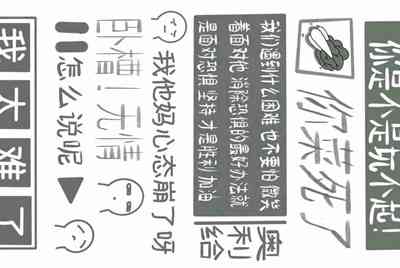 你是不是玩不起!
你菜死了
我们遇到什么困难 也不要怕 微笑
着面对他 消除恐惧的最好办法就
是面对恐惧 坚持 才是胜利 加油
奥利给
我他妈心态崩了呀
卧槽！无情
怎么说呢
我太难了